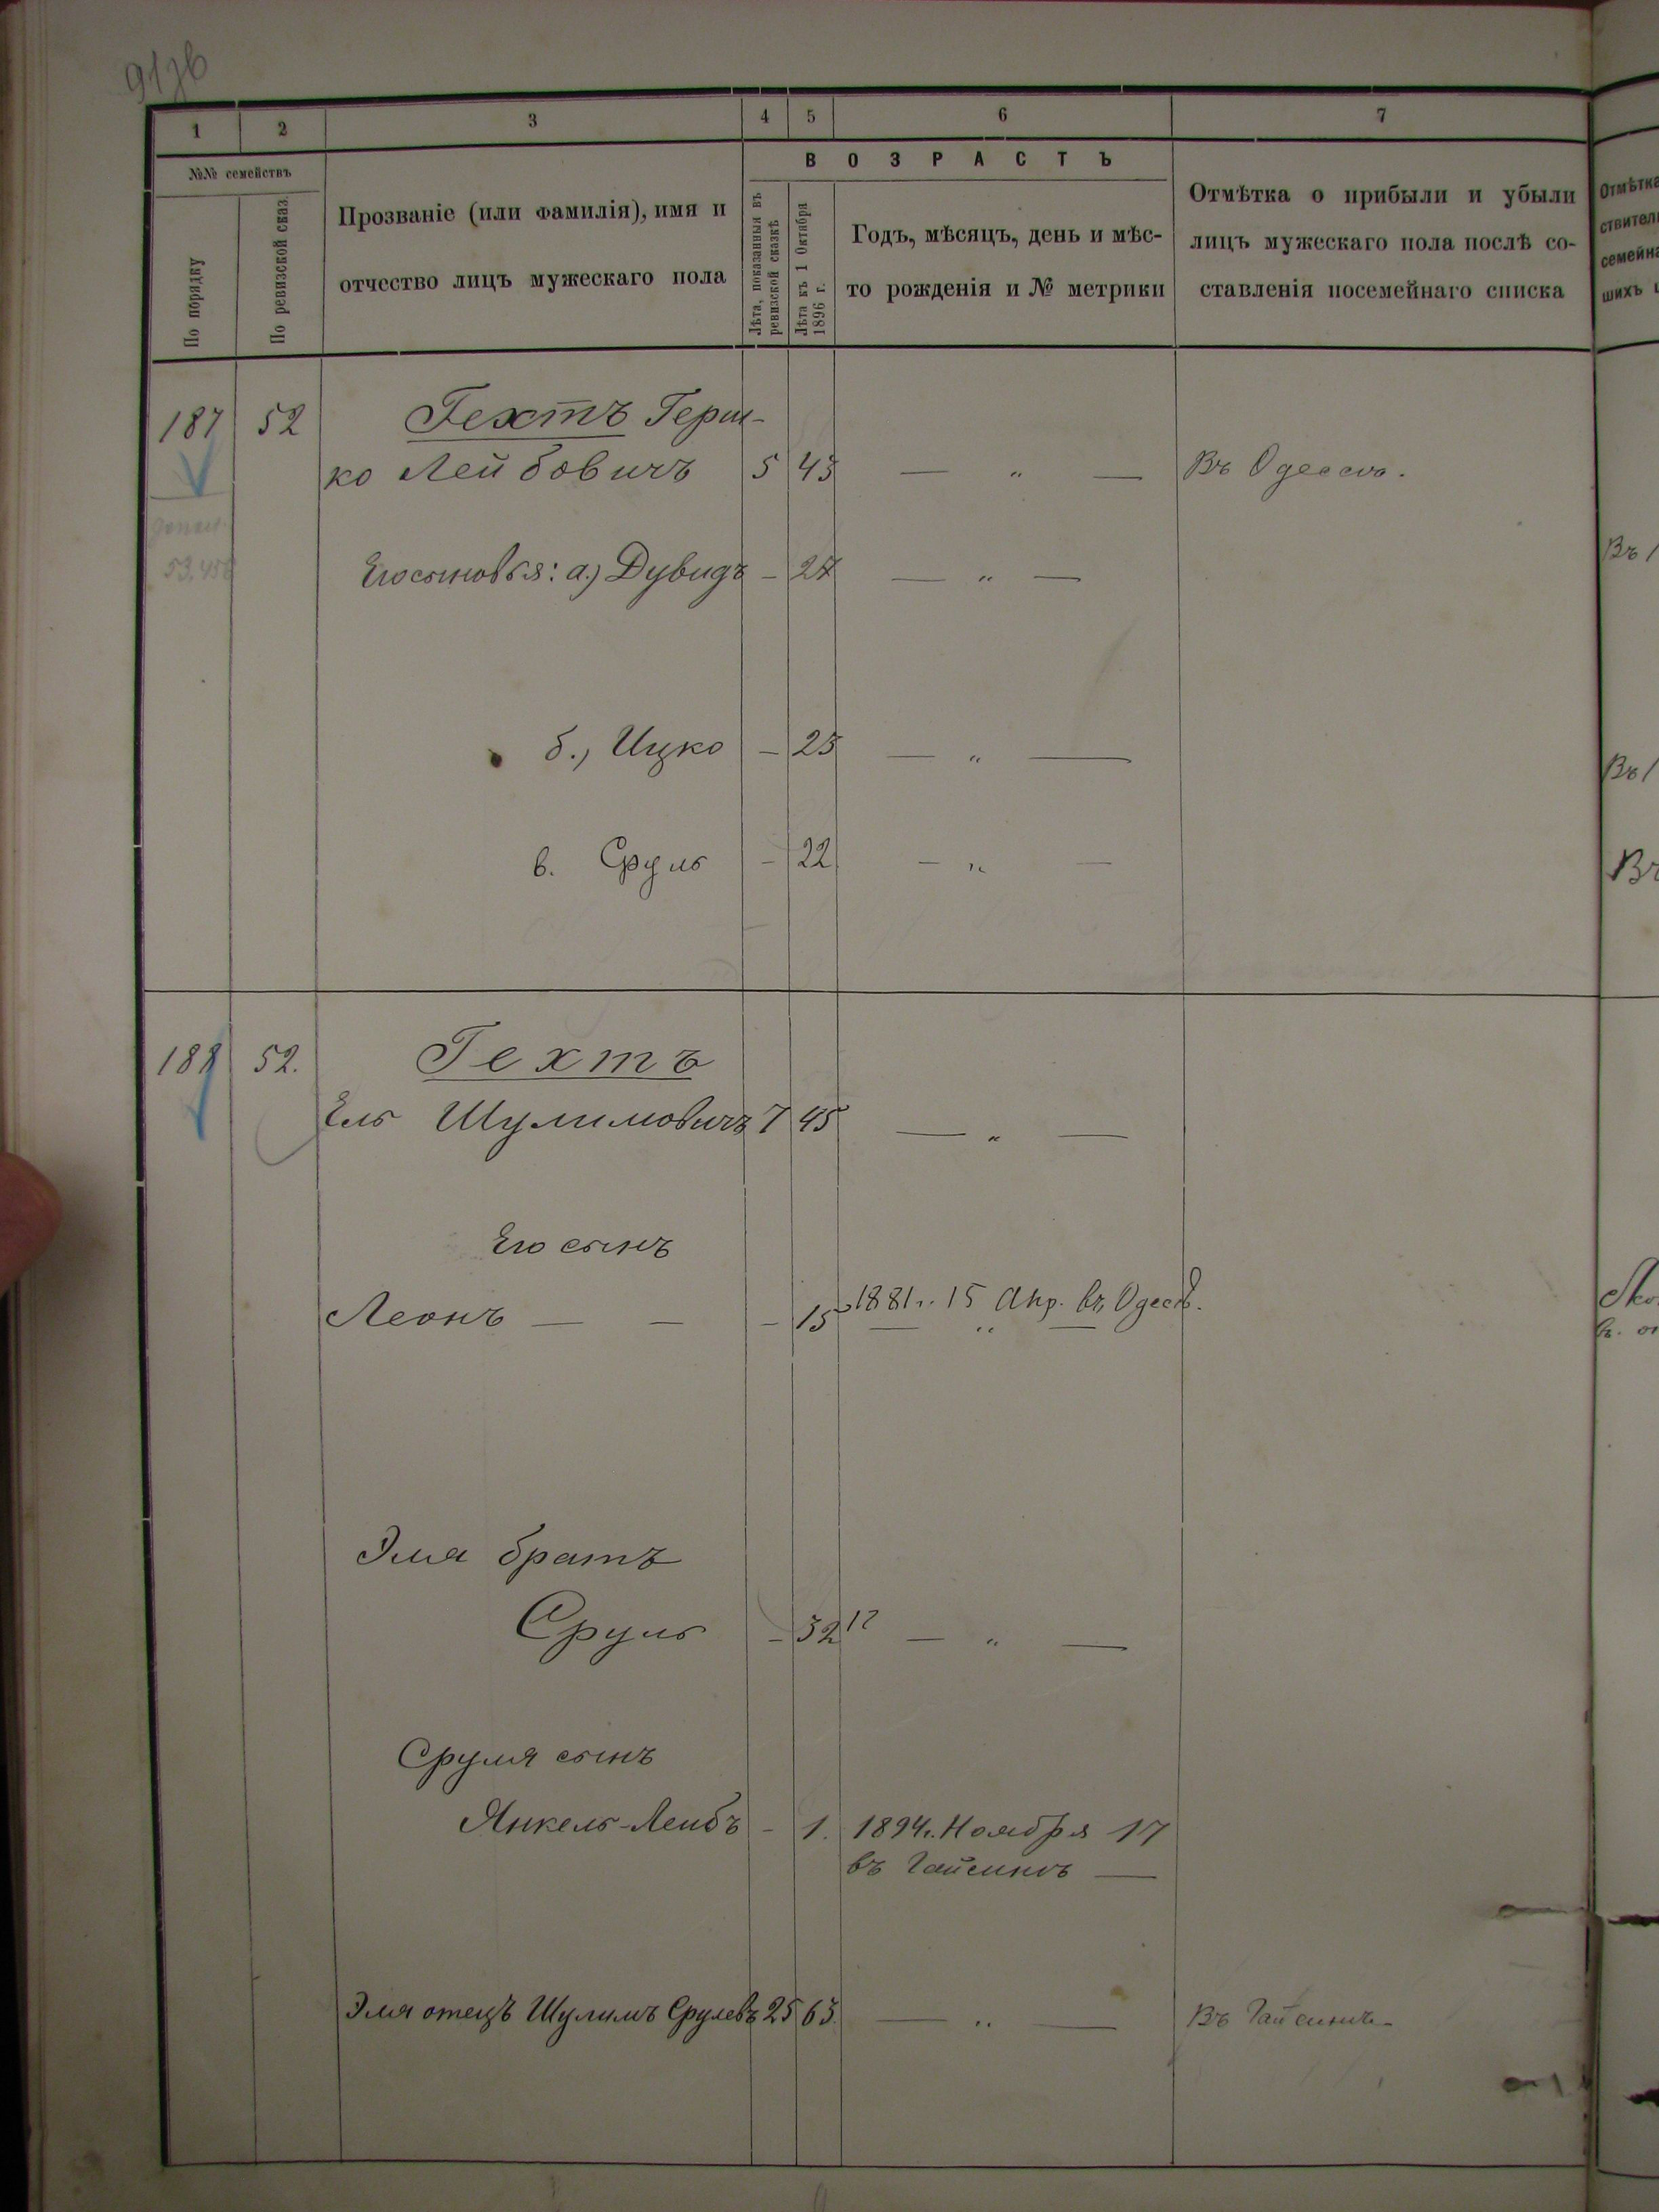 1 2 3 4 5 6 7
№№ семействъ
По порядку
По ревизской сказ.
Прозваніе (или фамилія), имя и
отчество лицъ мужескаго пола
ВОЗРАСТЪ
Лѣта, показанныя въ
ревизской сказкѣ
Лѣта къ 1 Октября
1896 г.
Годъ, мѣсяцъ, день и мѣс-
то рожденія и № метрики
Отмѣтка о прибыли и убыли
лицъ мужескаго пола послѣ со-
ставленія посемейнаго списка
187 52 Гехтъ Герш-
ко Лейбовичъ 5 43 — " — Въ Одессѣ.
Его сыновья: а.) Дувидъ — 27 — " —
б.) Ицко — 25 — " —
в. Сруль — 22 — " —
188 52. Гехтъ
Эль Шулимовичъ 7 45 — " —
Его сынъ
Леонъ — — — 15 1881 г. 15 Апр. въ Одессѣ.
— " —
Эля братъ
Сруль — 32 — " —
Сруля сынъ
Янкель-Лейбъ — 1. 1894 г. Ноября 17
въ Гайсинѣ —
Эля отецъ Шулимъ Срулевъ 25 63 — " — Въ Гайсинѣ